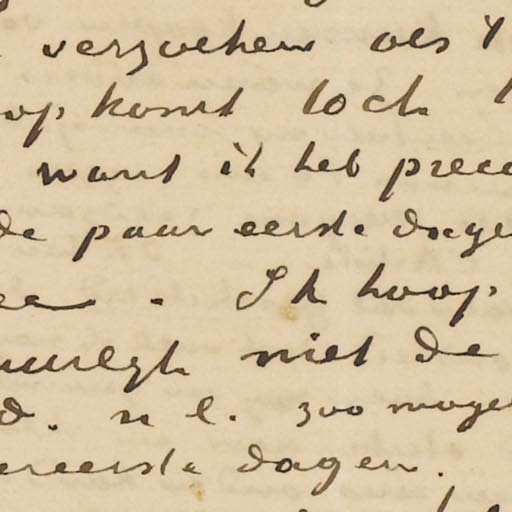 verzoeken als 't
op komt toch
want ik heb prec
de paar eerste dage
ee. Ik hoop
uurlyk niet de
d. n l. zoo mogel
ereerste dagen.